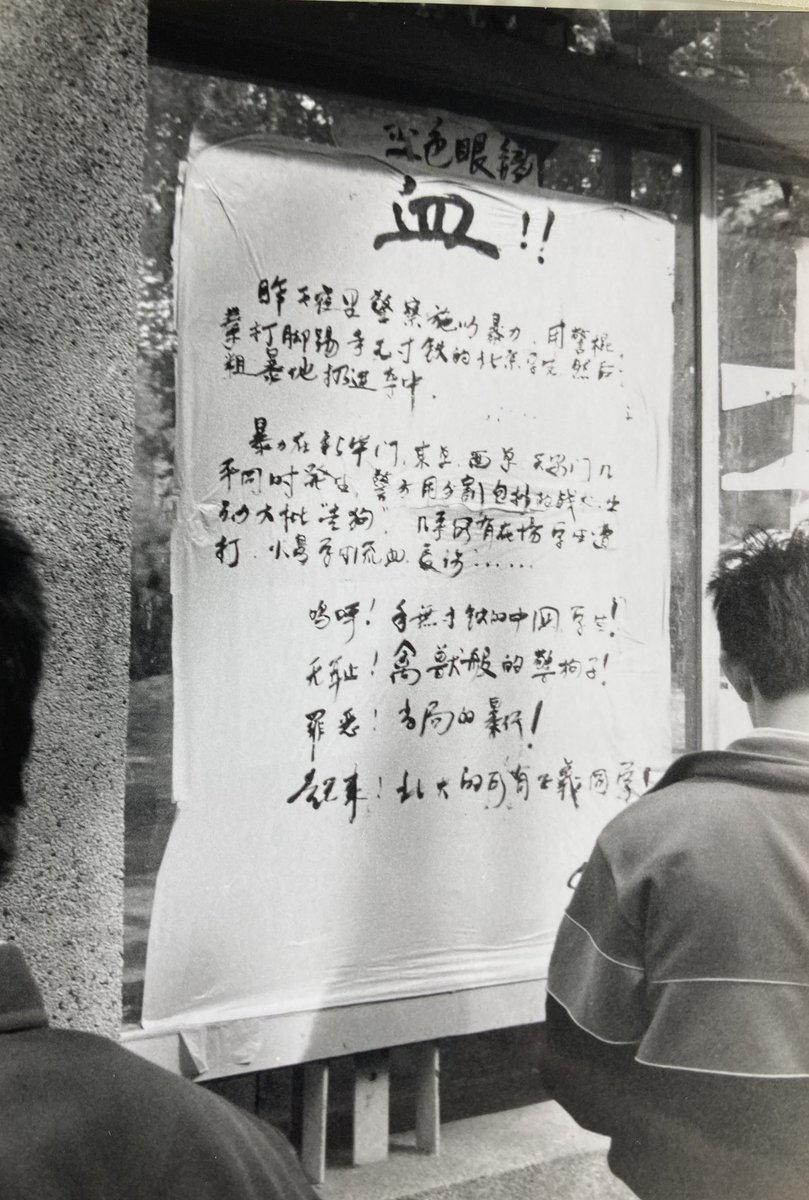 色眼镜
血!!
昨天夜里警察施以暴力,用警棍,
拳打脚踢手无寸铁的北京学生 然后
粗暴地扔进车中.
暴力在新华门,东单,西单,天安门几
乎同时發生,警方用分割包抄战术,出
动大批"警狗",几乎所有在场学生遭
打,学生流血,受伤……
呜呼!手無寸铁的中国学生!
无耻!禽獸般的警狗子!
罪恶!当局的暴行!
起来!北大的所有正義同学!